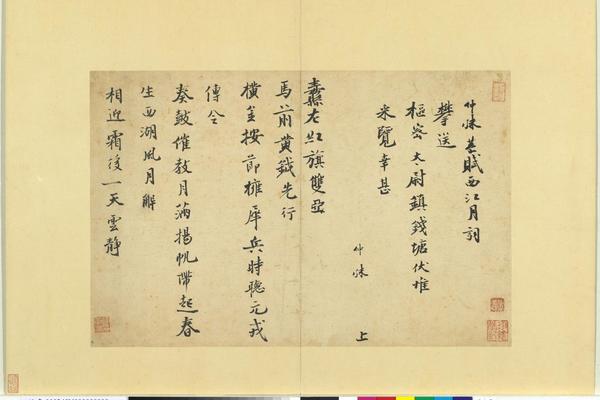 仲殊恭賦西江月詞
攀送
樞密大尉鎮錢塘伏惟
采覽幸甚
仲殊 上
纛左紅旗雙亞
馬前黄鉞先行
橫金按節擁犀兵時聽元戎
傳令
奏鼓催教月滿揚帆帶起春
生西湖風月解
相近霜後一天雲靜